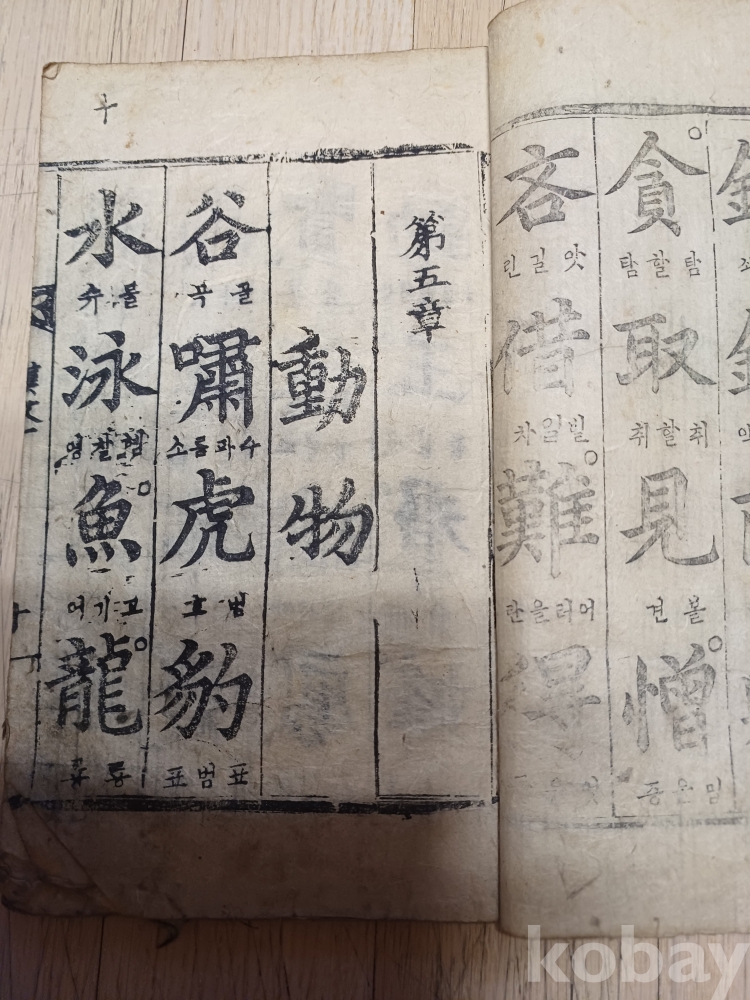 貪
탐할탐
取
취할취
見
볼견
憎
吝
앗길린
借
빌일차
難
어러울란
第五章
動物
谷
골곡
嘯
수파름소
虎
범호
豹
표범표
水
물슈
泳
魚
고기어
龍
kobay